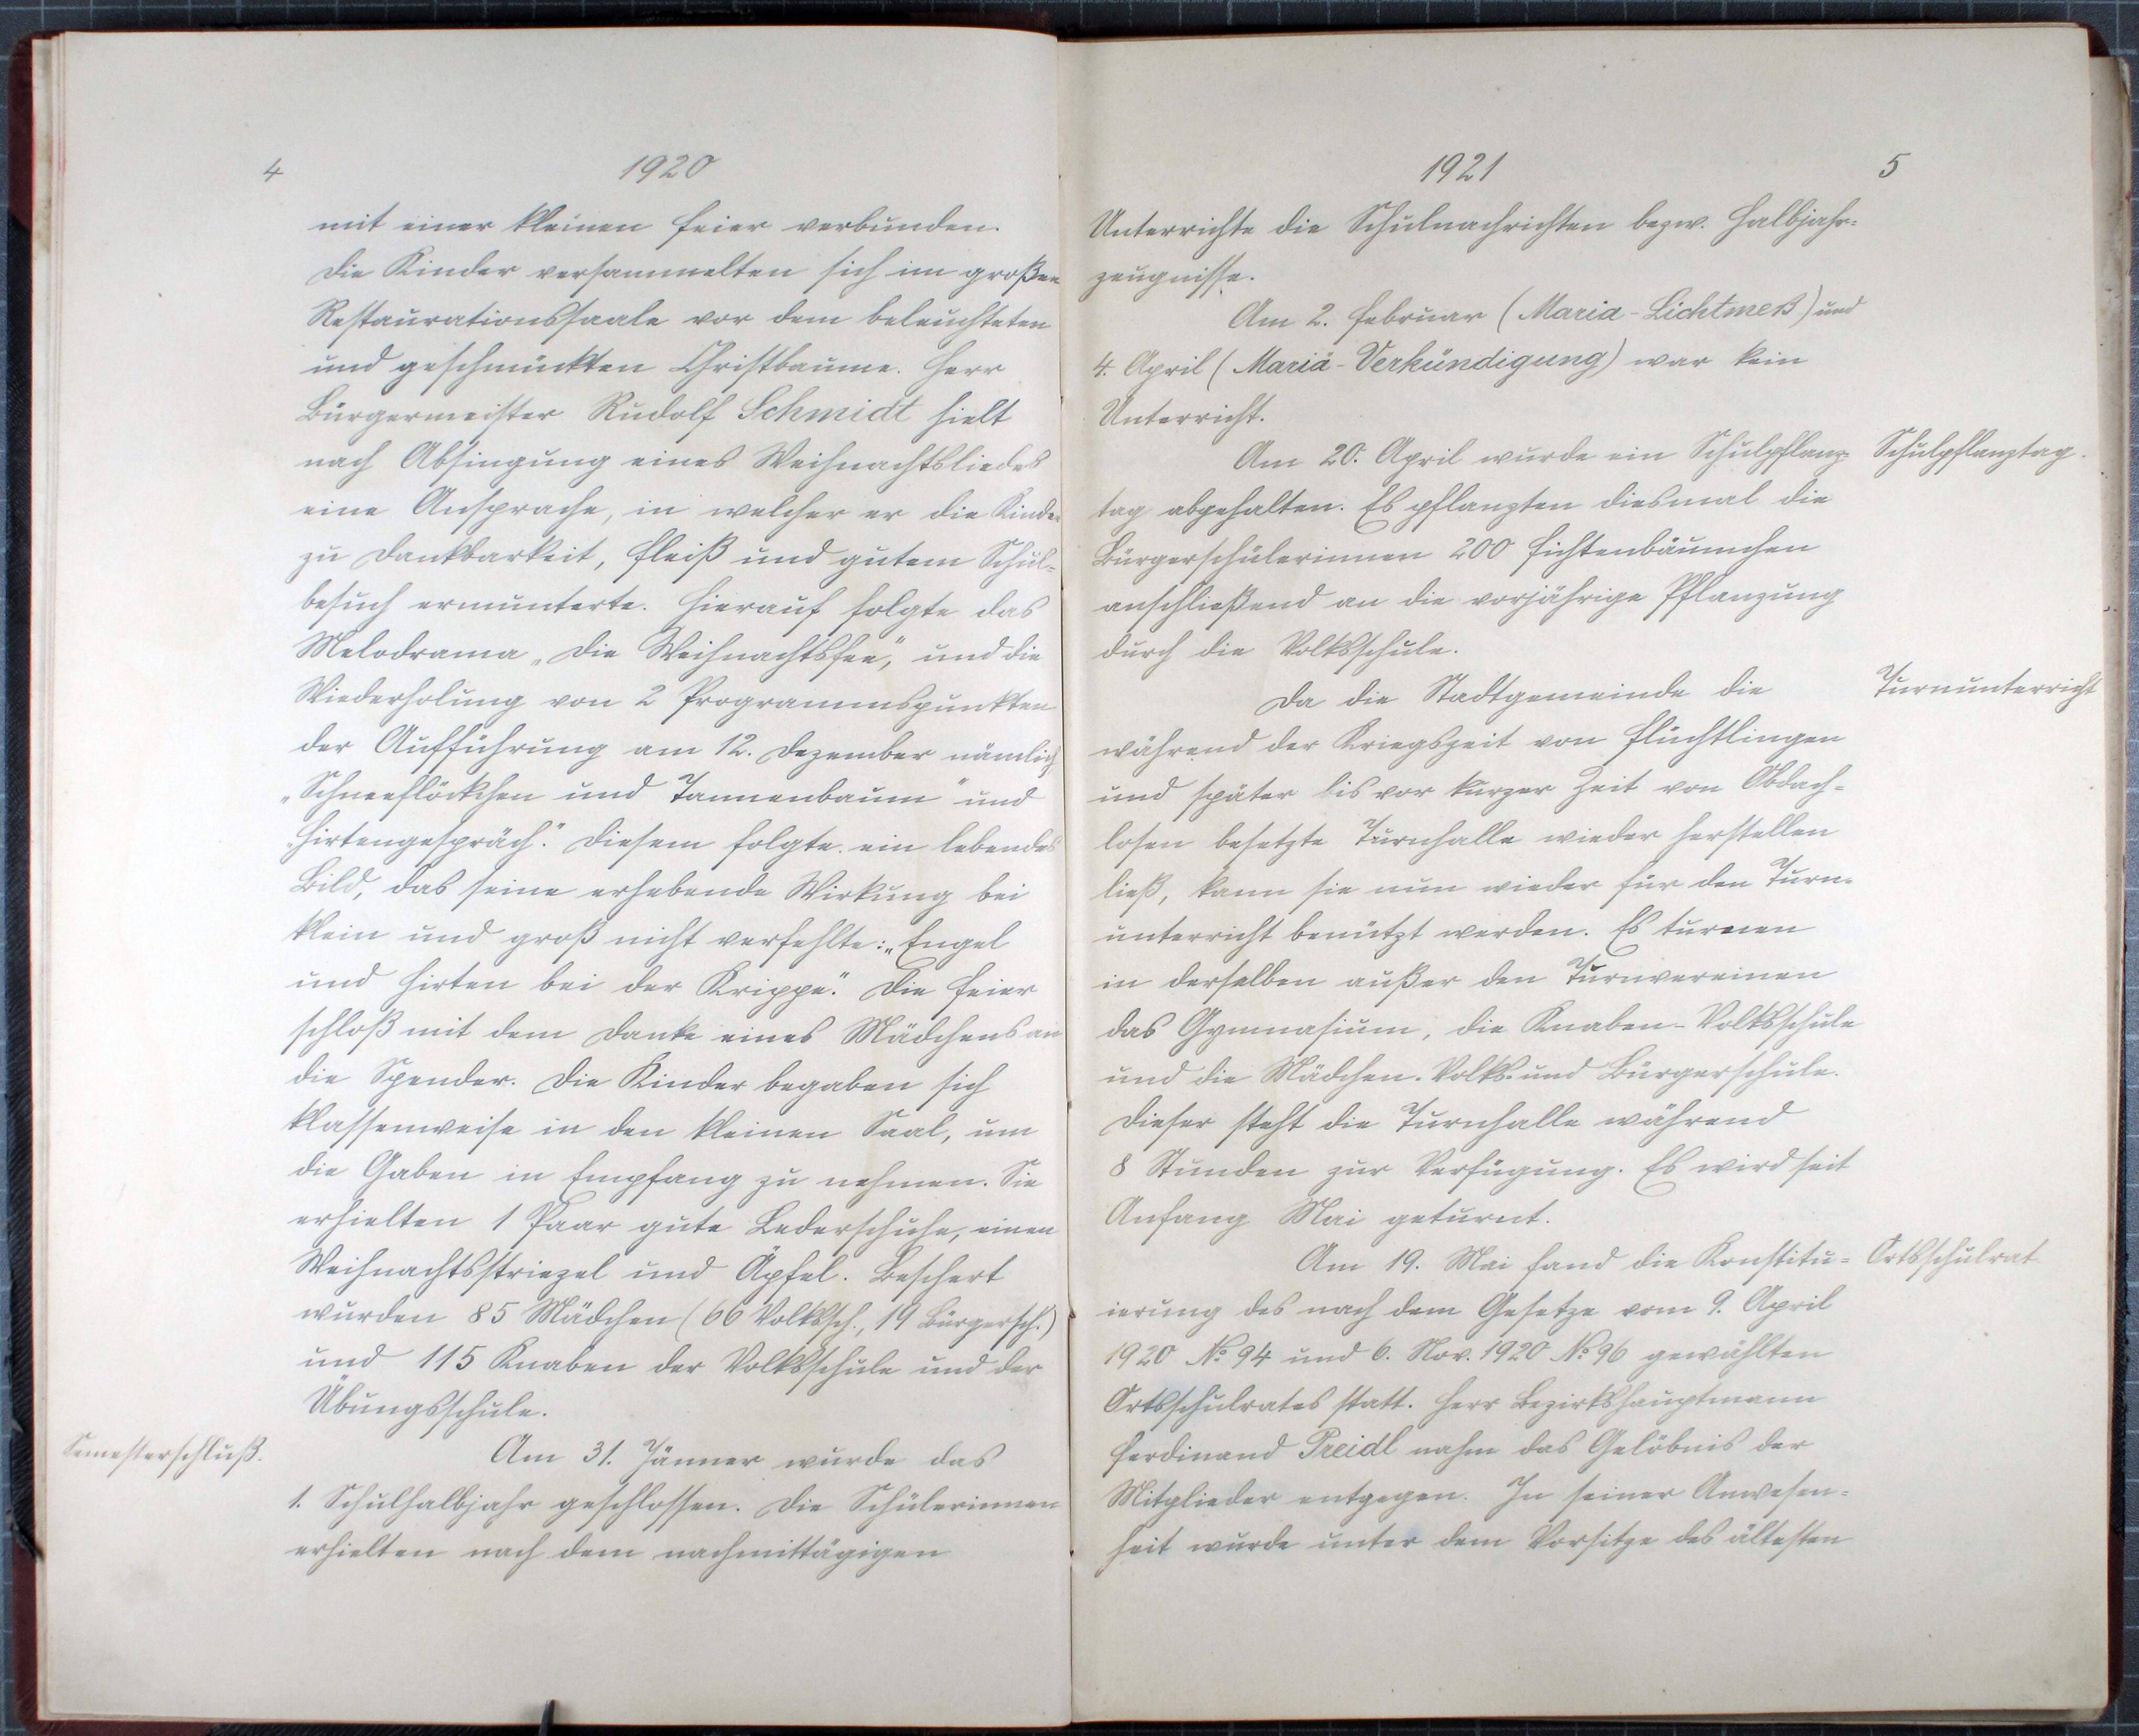 4
1920
mit einer kleinen Feier verbunden.
Die Kinder versammelten sich im großen
Restaurationssaale vor dem beleuchteten
und geschmückten Christbaume. Herr
Bürgermeister Rudolf Schmidt hielt
nach Absingung eines Weihnachtsliedes
eine Ansprache, in welcher er die Kinder
zu Dankbarkeit, Fleiß und gutem Schul-
besuch ermunterte. Hierauf folgte das
Melodrama „Die Weihnachtsfee", und die
Wiederholung von 2 Programmspunkten
der Aufführung am 12. Dezember nämlich
„Schneeflöckchen und Tannenbaum" und
„Hirtengespräch". Diesem folgte ein lebendes
Bild, das seine erhebende Wirkung bei
klein und groß nicht verfehlte: „Engel
und Hirten bei der Krippe". Die Feier
schloß mit dem Danke eines Mädchens an
die Spender. Die Kinder begaben sich
klassenweise in den kleinen Saal, um
die Gaben in Empfang zu nehmen. Sie
erhielten 1 Paar gute Lederschuhe, einen
Weihnachtsstriezel und Äpfel. Beschert
wurden 85 Mädchen (66 Volkssch., 19 Bürgersch.)
und 115 Knaben der Volksschule und der
Übungsschule.
Semesterschluß.
Am 31. Jänner wurde das
1. Schulhalbjahr geschlossen. Die Schülerinnen
erhielten nach dem nachmittägigen
1921
5
Unterrichte die Schulnachrichten bezw. Halbjahr-
zeugnisse.
Am 2. Februar (Maria-Lichtmeß) und
4. April (Mariä-Verkündigung) war kein
Unterricht.
Am 20. April wurde ein Schulpflanz-
Schulpflanztag.
tag abgehalten. Es pflanzten diesmal die
Bürgerschülerinnen 200 Fichtenbäumchen
anschließend an die vorjährige Pflanzung
durch die Volksschule.
Da die Stadtgemeinde die
Turnunterricht
während der Kriegszeit von Flüchtlingen
und später bis vor kurzer Zeit von Obdach-
losen besetzte Turnhalle wieder herstellen
ließ, kann sie nun wieder für den Turn-
unterricht benützt werden. Es turnen
in derselben außer den Turnvereinen
das Gymnasium, die Knaben-Volksschule
und die Mädchen-Volks- und Bürgerschule.
Dieser steht die Turnhalle während
8 Stunden zur Verfügung. Es wird seit
Anfang Mai geturnt.
Am 19. Mai fand die Konstitu-
Ortsschulrat
ierung des nach dem Gesetze vom 9. April
1920 No 94 und 6. Nov. 1920 No 96 gewählten
Ortsschulrates statt. Herr Bezirkshauptmann
Ferdinand Preidl nahm das Gelöbnis der
Mitglieder entgegen. In seiner Anwesen-
heit wurde unter dem Vorsitze des ältesten